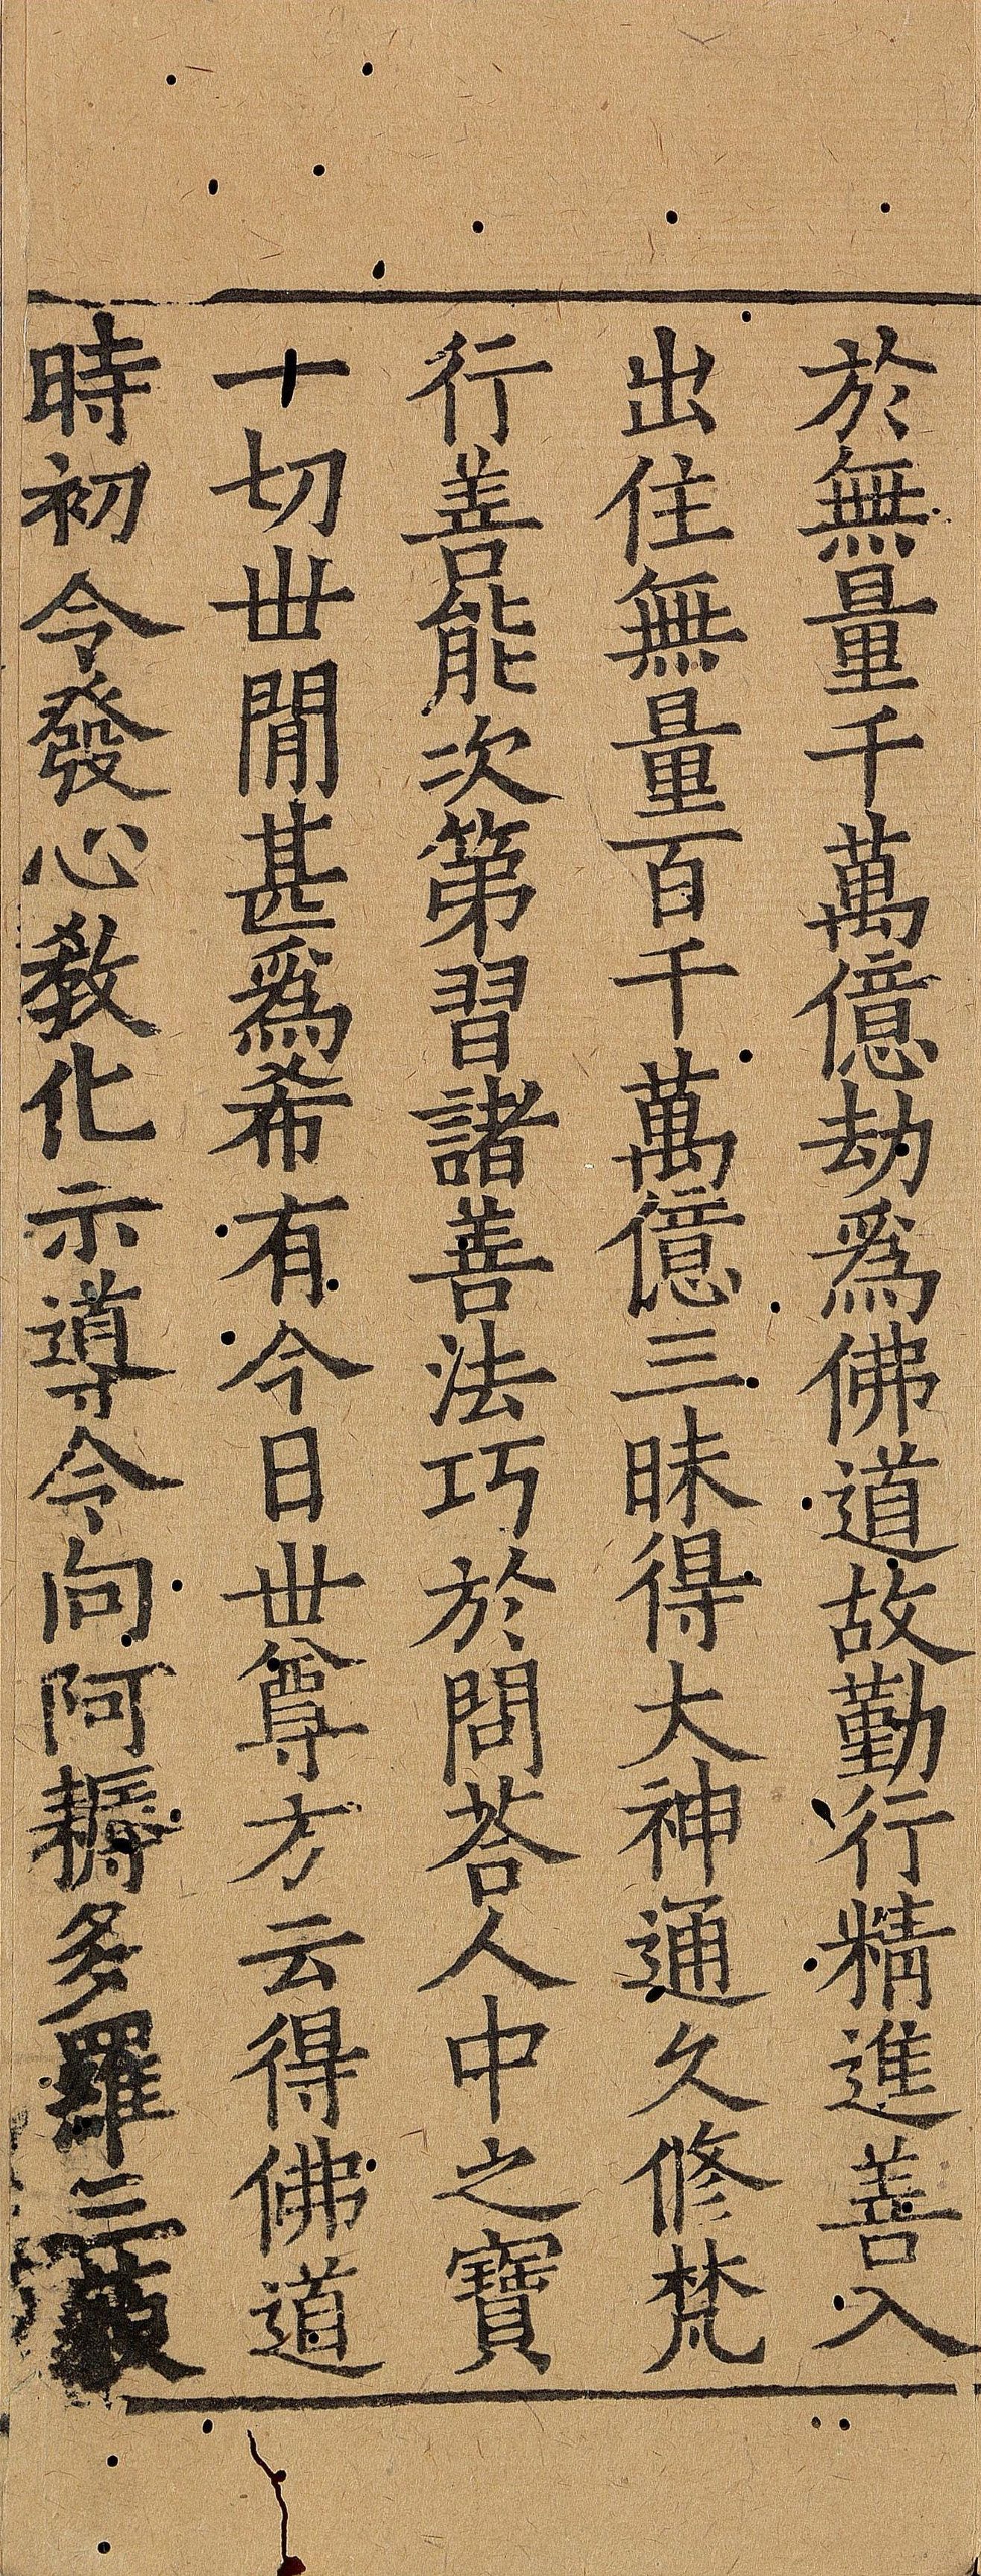 於無量千萬億劫爲佛道故勤行精進善入
出住無量百千萬億三昧得大神通久修梵
行善能次第習諸善法巧於問荅人中之寶
十切世閒甚爲希有今日世尊方云得佛道
時初令發心教化示導令向阿耨多羅三藐